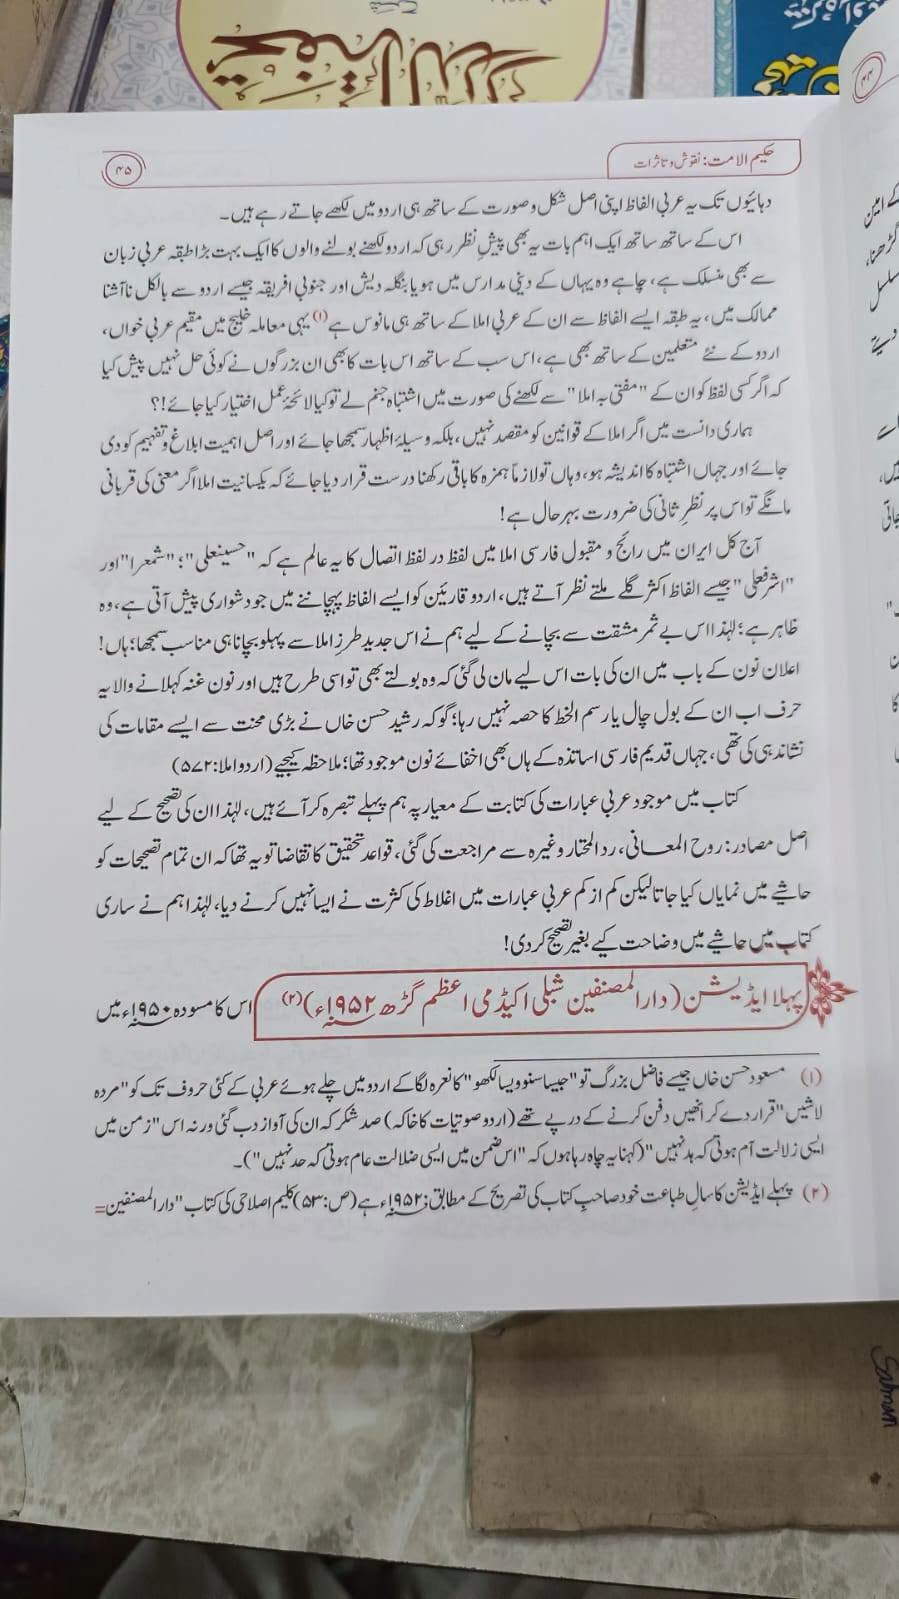 حکیم الامت: نقوش و تاثرات
۴۵
دہائیوں تک یہ عربی الفاظ اپنی اصل شکل و صورت کے ساتھ ہی اردو میں لکھے جاتے رہے ہیں۔
اس کے ساتھ ساتھ ایک اہم بات یہ بھی پیش نظر رہی کہ اردو لکھنے بولنے والوں کا ایک بہت بڑا طبقہ عربی زبان
سے بھی منسلک ہے، چاہے وہ یہاں کے دینی مدارس میں ہو یا بنگلہ دیش اور جنوبی افریقہ جیسے اردو سے بالکل ناآشنا
ممالک میں، یہ طبقہ ایسے الفاظ سے ان کے عربی املا کے ساتھ ہی مانوس ہے(۱) یہی معاملہ خلیج میں مقیم عربی خواں،
اردو کے نئے متعلمین کے ساتھ بھی ہے، اس سب کے ساتھ اس بات کا بھی ان بزرگوں نے کوئی حل نہیں پیش کیا
کہ اگر کسی لفظ کو ان کے "مفتی بہ املا" سے لکھنے کی صورت میں اشتباہ جنم لے تو کیا لائحۂ عمل اختیار کیا جائے!؟
ہماری دانست میں اگر املا کے قوانین کو مقصد نہیں، بلکہ وسیلۂ اظہار سمجھا جائے اور اصل اہمیت ابلاغ و تفہیم کو دی
جائے اور جہاں اشتباہ کا اندیشہ ہو، وہاں تو لازماً ہمزہ کا باقی رکھنا درست قرار دیا جائے کہ یکسانیت املا اگر معنی کی قربانی
مانگے تو اس پر نظرِ ثانی کی ضرورت بہر حال ہے!
آج کل ایران میں رائج و مقبول فارسی املا میں لفظ در لفظ اتصال کا یہ عالم ہے کہ "حسینعلی"؛ "شمعرا" اور
"اشرفعلی" جیسے الفاظ اکثر گلے ملتے نظر آتے ہیں، اردو قارئین کو ایسے الفاظ پہچاننے میں جو دشواری پیش آتی ہے، وہ
ظاہر ہے؛ لہٰذا اس بے ثمر مشقت سے بچانے کے لیے ہم نے اس جدید طرزِ املا سے پہلو بچانا ہی مناسب سمجھا؛ ہاں!
اعلان نون کے باب میں ان کی بات اس لیے مان لی گئی کہ وہ بولتے بھی تو اسی طرح ہیں اور نون غنہ کہلانے والا یہ
حرف اب ان کے بول چال یا رسم الخط کا حصہ نہیں رہا؛ گو کہ رشید حسن خاں نے بڑی محنت سے ایسے مقامات کی
نشاندہی کی تھی، جہاں قدیم فارسی اساتذہ کے ہاں بھی اخفائے نون موجود تھا؛ ملاحظہ کیجیے (اردو املا: ۵۷۲)
کتاب میں موجود عربی عبارات کی کتابت کے معیار پہ ہم پہلے تبصرہ کر آئے ہیں، لہٰذا ان کی تصحیح کے لیے
اصل مصادر: روح المعانی، رد المختار وغیرہ سے مراجعت کی گئی، قواعد تحقیق کا تقاضا تو یہ تھا کہ ان تمام تصحیحات کو
حاشیے میں نمایاں کیا جاتا لیکن کم از کم عربی عبارات میں اغلاط کی کثرت نے ایسا نہیں کرنے دیا، لہٰذا ہم نے ساری
کتاب میں حاشیے میں وضاحت کیے بغیر تصحیح کر دی!
پہلا ایڈیشن (دار المصنفین شبلی اکیڈمی اعظم گڑھ ۱۹۵۲ء)(۲) اس کا مسودہ ۱۹۵۰ء میں
(۱) مسعود حسن خاں جیسے فاضل بزرگ تو "جیسا سنو ویسا لکھو" کا نعرہ لگا کے اردو میں چلے ہوئے عربی کے کئی حروف تک کو "مردہ
لاشیں" قرار دے کر انھیں دفن کرنے کے درپے تھے (اردو صوتیات کا خاکہ) صد شکر کہ ان کی آواز دب گئی ورنہ اس "زمن میں
ایسی زلالت آم ہوتی کہ ہد نہیں" (کہنا یہ چاہ رہا ہوں کہ "اس ضمن میں ایسی ضلالت عام ہوتی کہ حد نہیں")۔
(۲) پہلے ایڈیشن کا سالِ طباعت خود صاحبِ کتاب کی تصریح کے مطابق: ۱۹۵۲ء ہے (ص: ۵۳) کلیم اصلاحی کی کتاب "دار المصنفین=
Salman